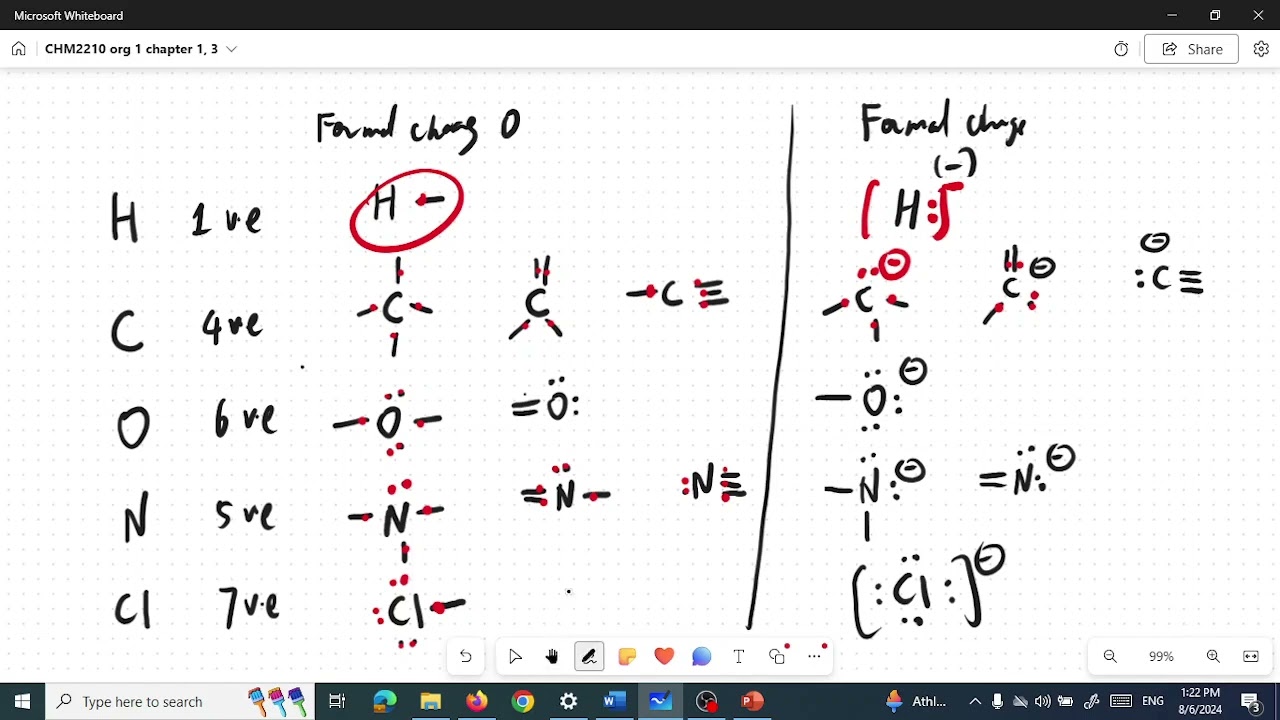 Microsoft Whiteboard
CHM2210 org 1 chapter 1, 3
Share
Formal charg 0
Formal charge
(-)
H 1 ve H - [ H: ]
C 4 ve - C - C - C ≡ :C ⊖ C ⊖ :C ≡ ⊖
O 6 ve - O - = O: - O: ⊖
N 5 ve - N - = N - :N ≡ - N: ⊖ = N: ⊖
Cl 7 ve :Cl - [ :Cl: ] ⊖
99%
Type here to search
Athl...
ENG
1:22 PM
8/6/2024
3